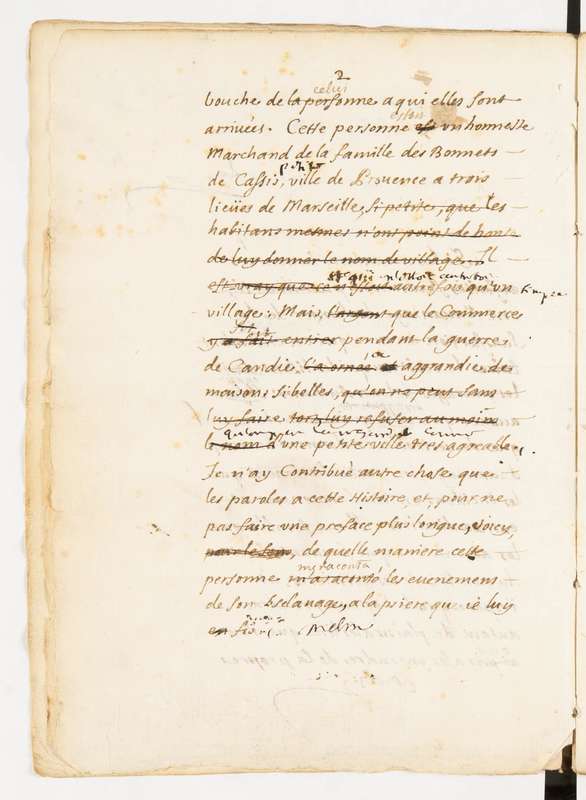 2
celui
bouche de la personne a qui elles sont
estoit
arriuées. Cette personne est vn honneste
Marchand de la famille des Bonnets
petite
de Cassis, ville de Prouence a trois
lieües de Marseille, si petite, que les
habitans mesmes n'ont point de honte
de luy donner le nom de village. Il
est vray que ce n'estoit autrefois qu'vn
village: Mais l'argent que le Commerce
y a fait entrer pendant la guerre
de Candie l'a ornée et aggrandie de
maisons si belles, qu'on ne peut sans
luy faire tort, luy refuser au moins
le nom d'vne petite ville tres agreable.
Je n'ay Contribué autre chose que
les paroles a cette Histoire et, pour ne
pas faire vne preface plus longue, voicy
de quelle maniere cette
m'a raconta
personne m'a raconté les euenemens
de son Esclauage, a la priere que ie luy
en